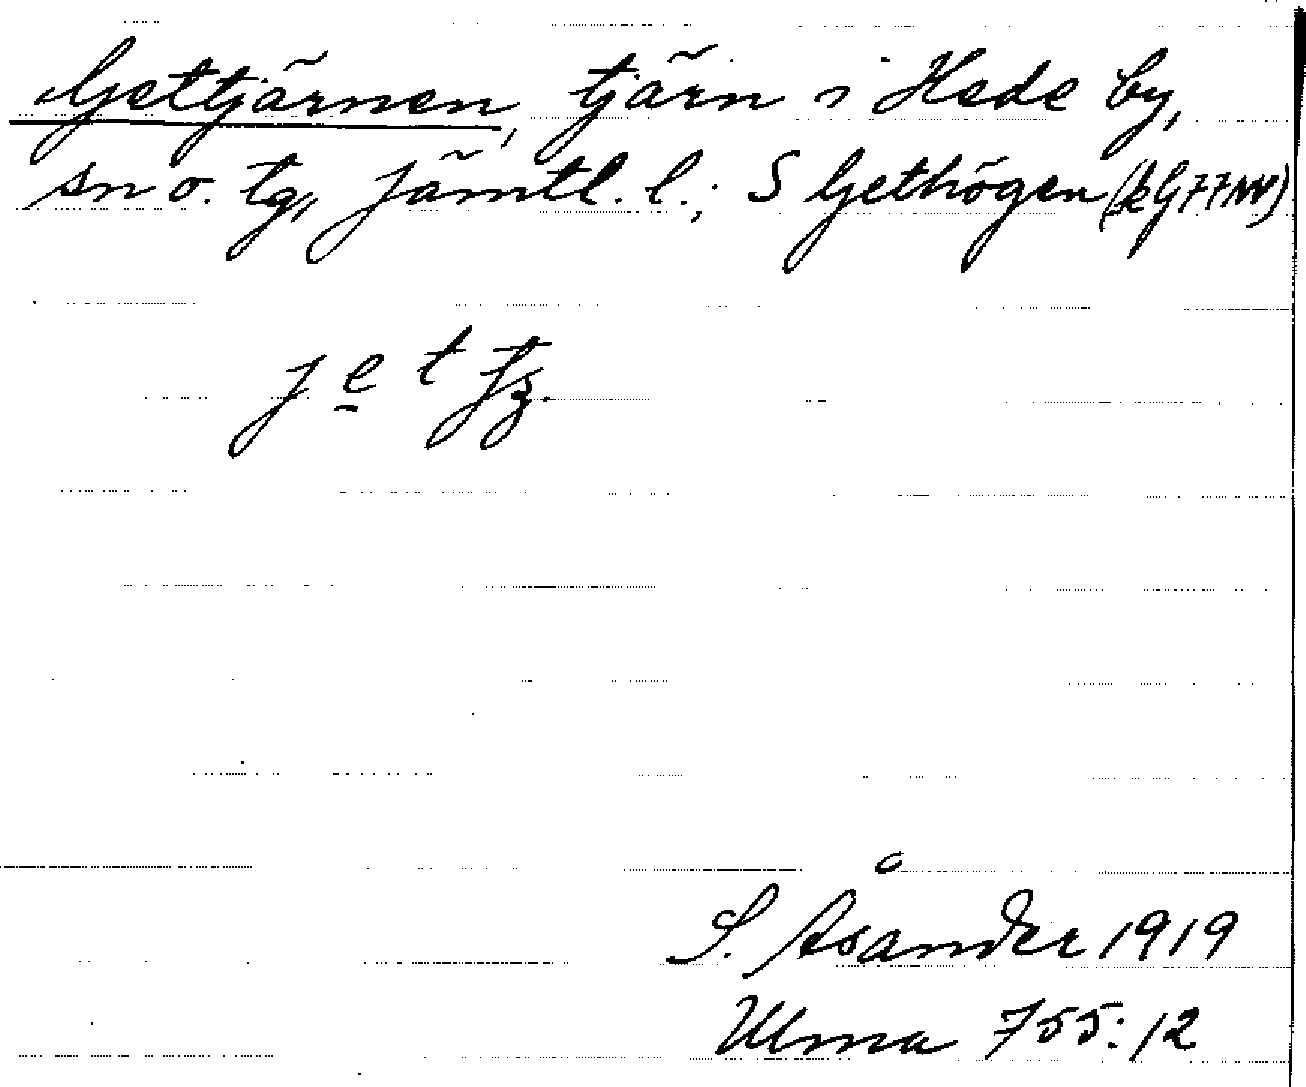 Gettjärnen, tjärn i Hede by,
sn o. tg, Jämtl. l.; S Gethögen (bG77NV)
S. Åsander 1919
Ulma 755:12